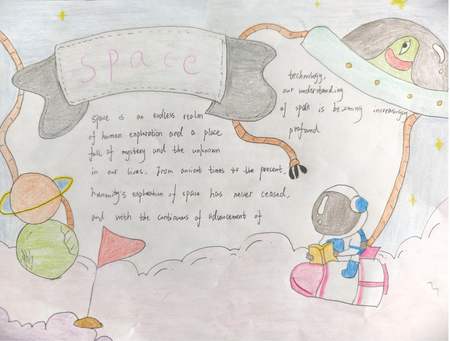 space
space is an endless realm
of human exploration and a place
full of mystery and the unknown
in our lives. From ancient times to the present,
humanity's exploration of space has never ceased,
and with the continuous of advancement of
technology,
our understanding
of space is becoming increasingly
profound